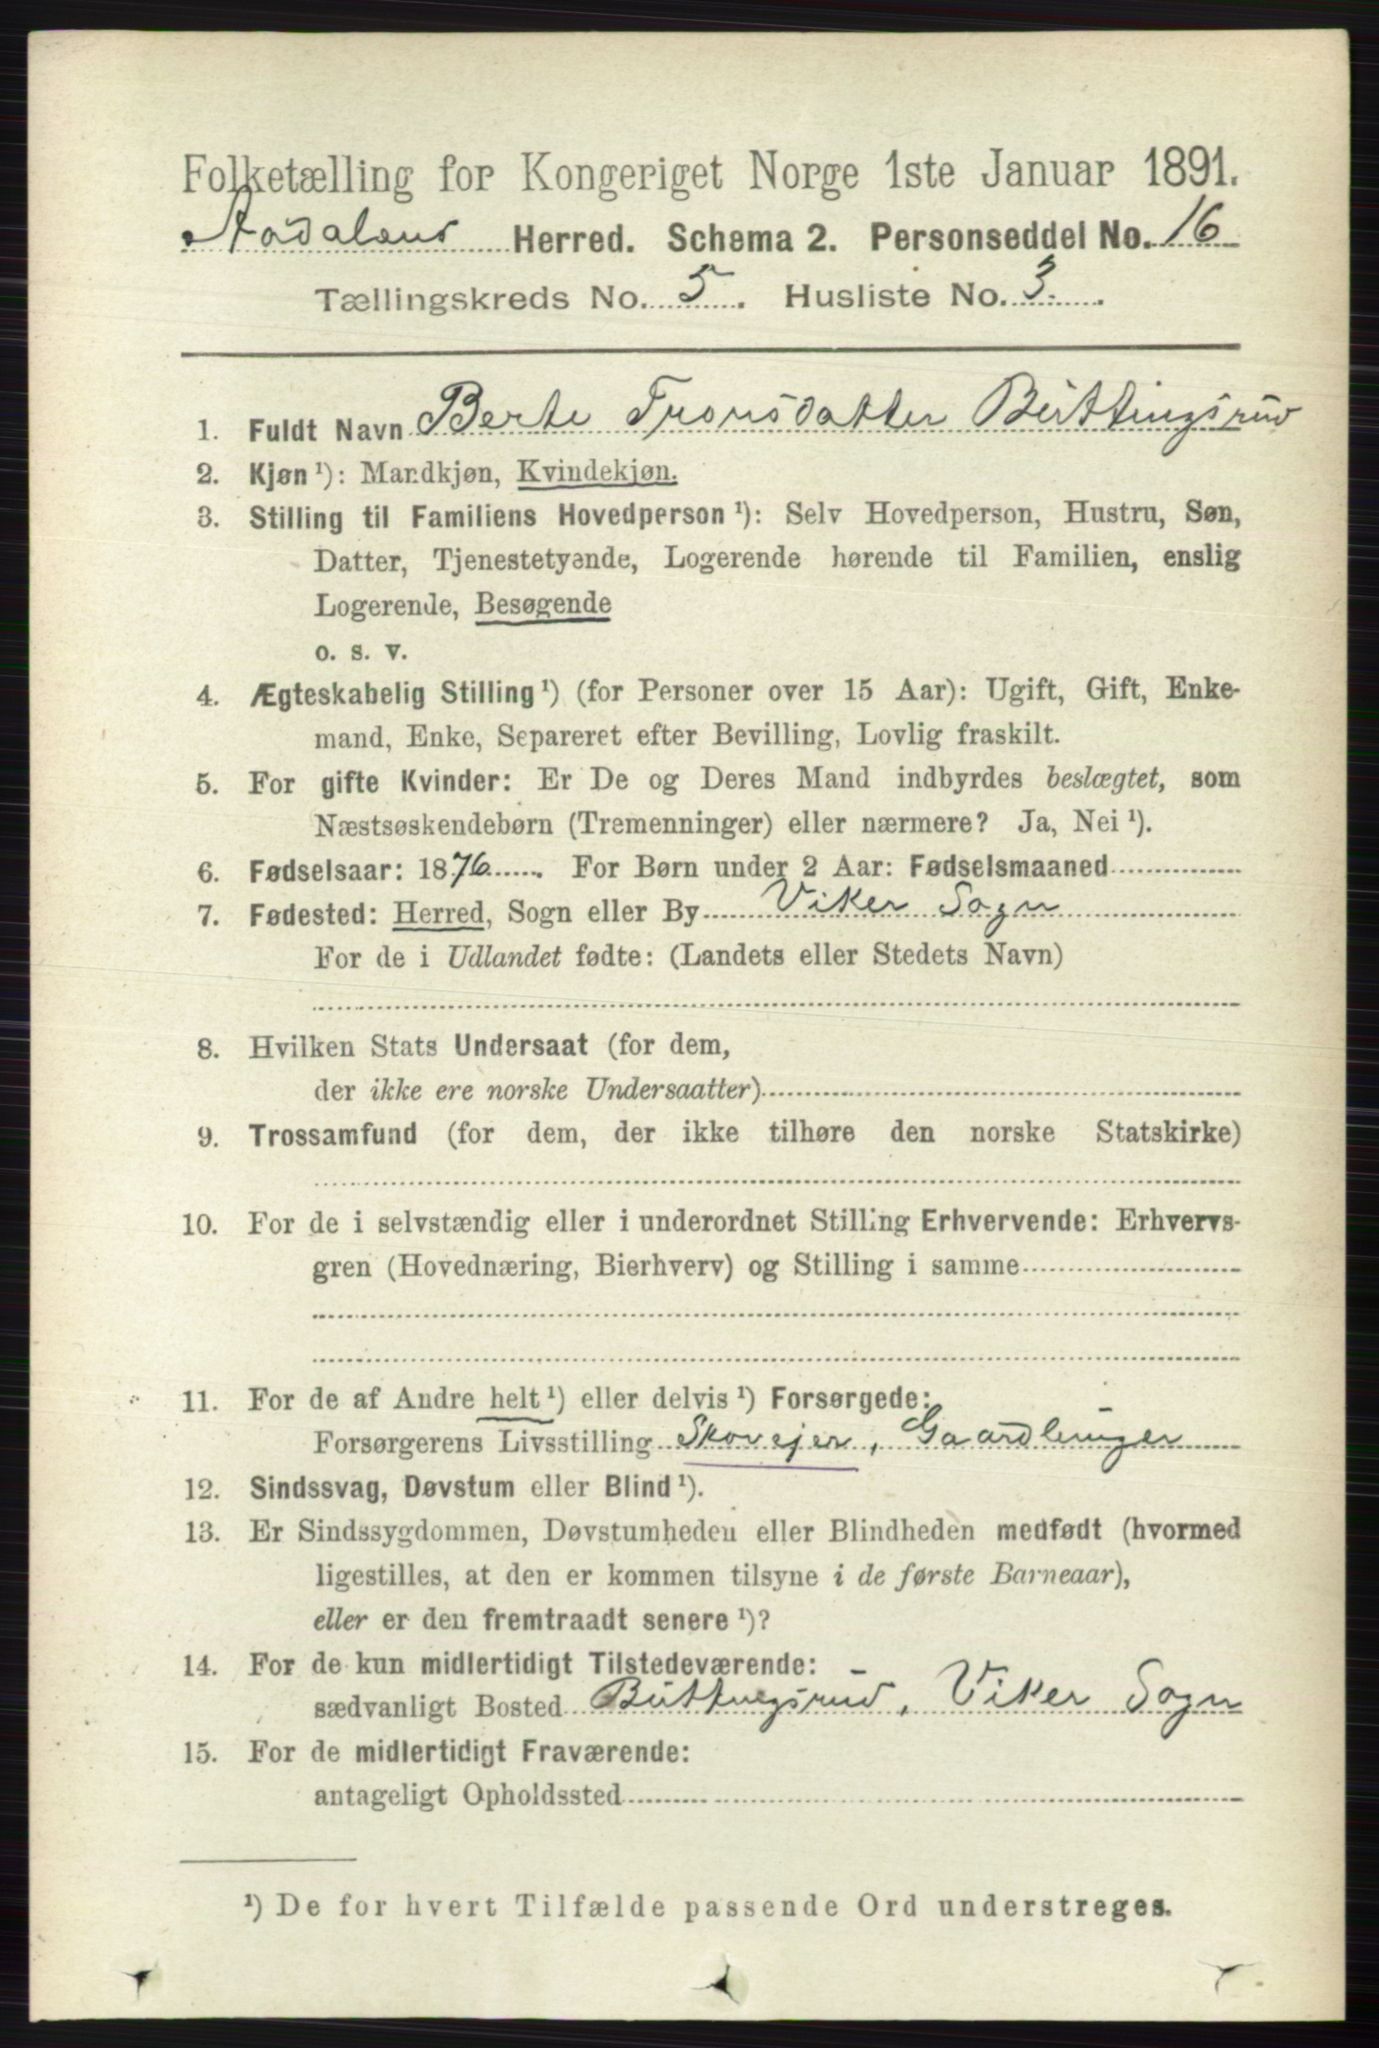 Folketælling for Kongeriget Norge 1ste Januar 1891.
Aadalens Herred. Schema 2. Personseddel No. 16
Tællingskreds No. 5. Husliste No. 3.
1. Fuldt Navn Berte Tronsdatter Büttingsrud
2. Kjøn ¹): Mandkjøn, Kvindekjøn.
3. Stilling til Familiens Hovedperson ¹): Selv Hovedperson, Hustru, Søn,
Datter, Tjenestetyende, Logerende hørende til Familien, enslig
Logerende, Besøgende
o. s. v.
4. Ægteskabelig Stilling ¹) (for Personer over 15 Aar): Ugift, Gift, Enke-
mand, Enke, Separeret efter Bevilling, Lovlig fraskilt.
5. For gifte Kvinder: Er De og Deres Mand indbyrdes beslægtet, som
Næstsøskendebørn (Tremenninger) eller nærmere? Ja, Nei ¹).
6. Fødselsaar: 1876. For Børn under 2 Aar: Fødselsmaaned
7. Fødested: Herred, Sogn eller By Viker Sogn
For de i Udlandet fødte: (Landets eller Stedets Navn)
8. Hvilken Stats Undersaat (for dem,
der ikke ere norske Undersaatter)
9. Trossamfund (for dem, der ikke tilhøre den norske Statskirke)
10. For de i selvstændig eller i underordnet Stilling Erhvervende: Erhvervs-
gren (Hovednæring, Bierhverv) og Stilling i samme
11. For de af Andre helt ¹) eller delvis ¹) Forsørgede:
Forsørgerens Livsstilling Skovejer, Gaardbruger
12. Sindssvag, Døvstum eller Blind ¹).
13. Er Sindssygdommen, Døvstumheden eller Blindheden medfødt (hvormed
ligestilles, at den er kommen tilsyne i de første Barneaar),
eller er den fremtraadt senere ¹)?
14. For de kun midlertidigt Tilstedeværende:
sædvanligt Bosted Büttingsrud, Viker Sogn
15. For de midlertidigt Fraværende:
antageligt Opholdssted
¹) De for hvert Tilfælde passende Ord understreges.